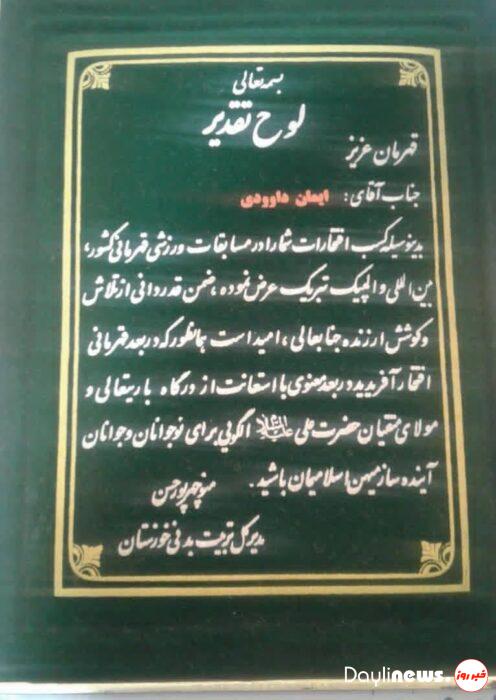 بسمه تعالی
لوح تقدیر
قهرمان عزیز
جناب آقای: ایمان داوودی
بدینوسیله کسب افتخارات شما را در مسابقات ورزشی قهرمانی کشور،
بین المللی و المپیک تبریک عرض نموده، ضمن قدردانی از تلاش
و کوشش ارزنده جنابعالی، امید است همانطور که در بعد قهرمانی
افتخار آفریدید در بعد معنوی با استعانت از درگاه باریتعالی و
مولای متقیان حضرت علی علیه السلام الگویی برای نوجوانان و جوانان
آینده ساز میهن اسلامیمان باشید.
منوچهر پورحسن
مدیر کل تربیت بدنی خوزستان
Daylinews.
خبر روز